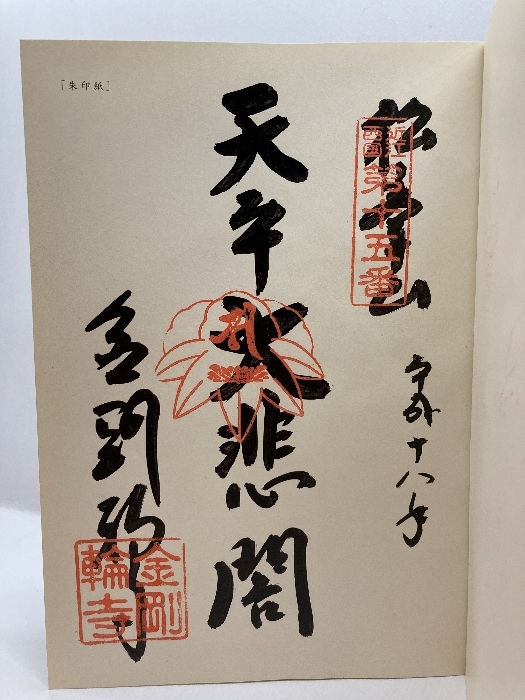 松峯山
近江
西國
第十五番
平成十八年
天平大悲閣
金剛輪寺
金剛
輪寺
［朱印紙］